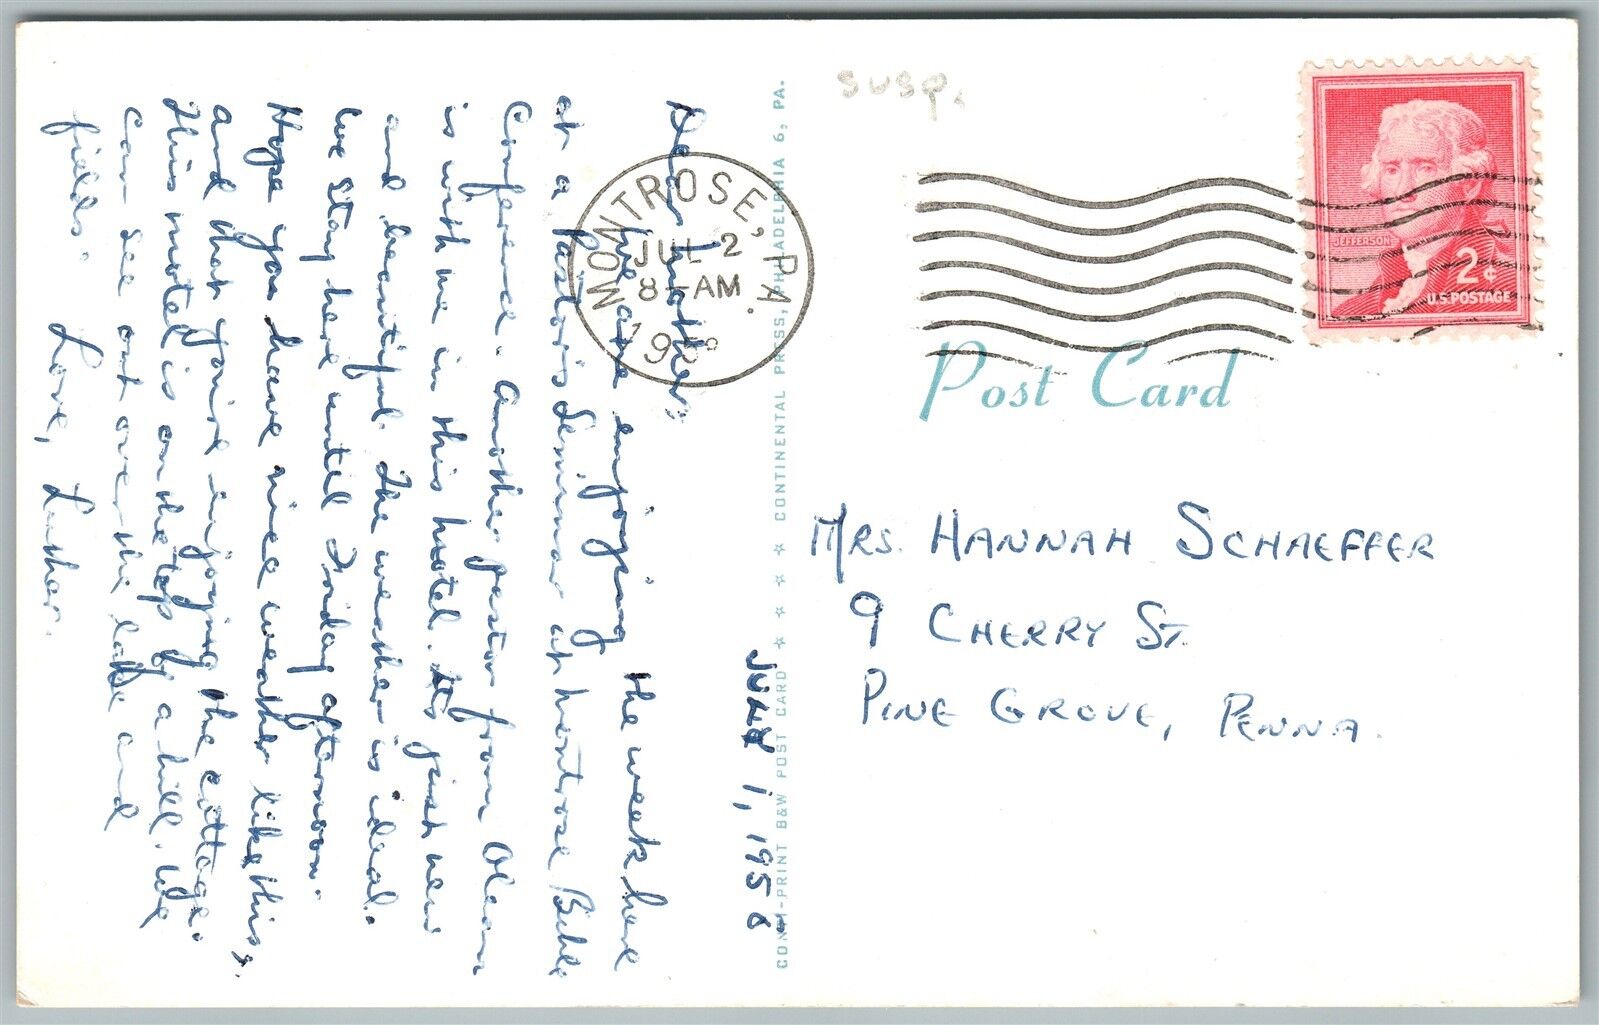 JULY 1, 1958
Dear Mother,
We are enjoying the week here
at a Pastor's Seminar at Montrose Bible
Conference. Another pastor from Olean
is with me in this motel. It's just new
and beautiful. The weather is ideal.
We stay here until Friday afternoon.
Hope you have nice weather like this,
and that you're enjoying the cottage.
This motel is on the top of a hill. We
can see out over the lake and
fields.
Love, Luther.
CONTI-PRINT B&W POST CARD ☆ ☆ ☆ CONTINENTAL PRESS, PHILADELPHIA 6, PA.
susp.
MONTROSE, PA.
JUL 2
8 - AM
JEFFERSON
2¢
U.S. POSTAGE
Post Card
MRS. HANNAH SCHAEFFER
9 CHERRY ST.
PINE GROVE, PENNA.